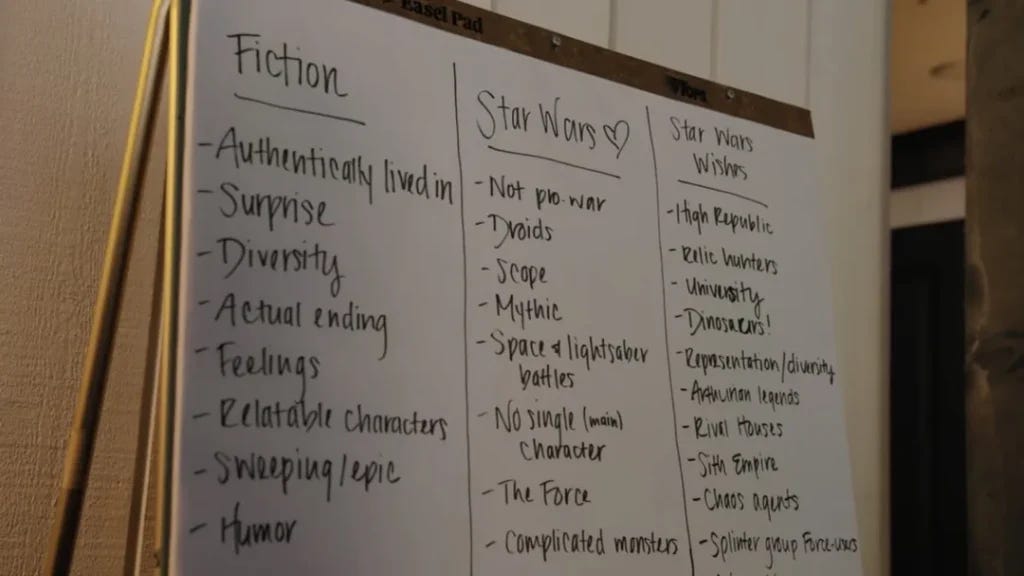 Easel Pad
Fiction
- Authentically lived in
- Surprise
- Diversity
- Actual ending
- Feelings
- Relatable characters
- Sweeping/epic
- Humor
Star Wars ♡
- Not pro-war
- Droids
- Scope
- Mythic
- Space & lightsaber
battles
- No single (main)
character
- The Force
- Complicated monsters
Star Wars
Wishes
- High Republic
- Relic hunters
- University
- Dinosaurs!
- Representation/diversity
- Arthurian legends
- Rival Houses
- Sith Empire
- Chaos agents
- Splinter group Force-users